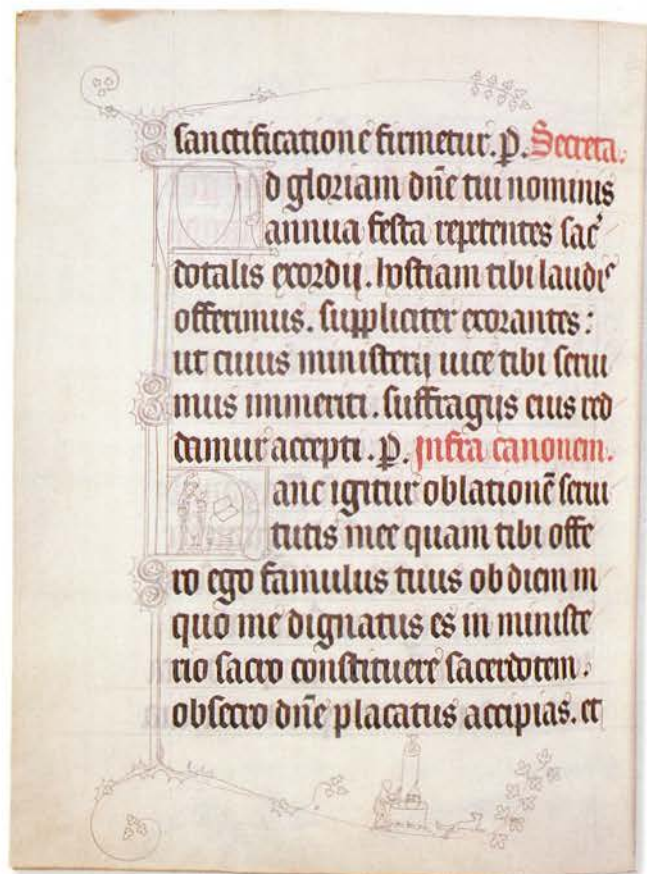 sanctificatione firmetur. p. Secreta.
d gloriam dn̄e tui nominis
annua festa repetentes sac͛
dotalis exordij. hostiam tibi laudis
offerimus. suppliciter exorantes :
ut cuius ministerij uice tibi serui
mus immeriti. suffragijs eius red
damur accepti. p. infra canonem.
anc igitur oblationē serui
tutis mee quam tibi offe
ro ego famulus tuus ob diem in
quo me dignatus es in ministe
rio sacro constituere sacerdotem :
obsecro dn̄e placatus accipias. et